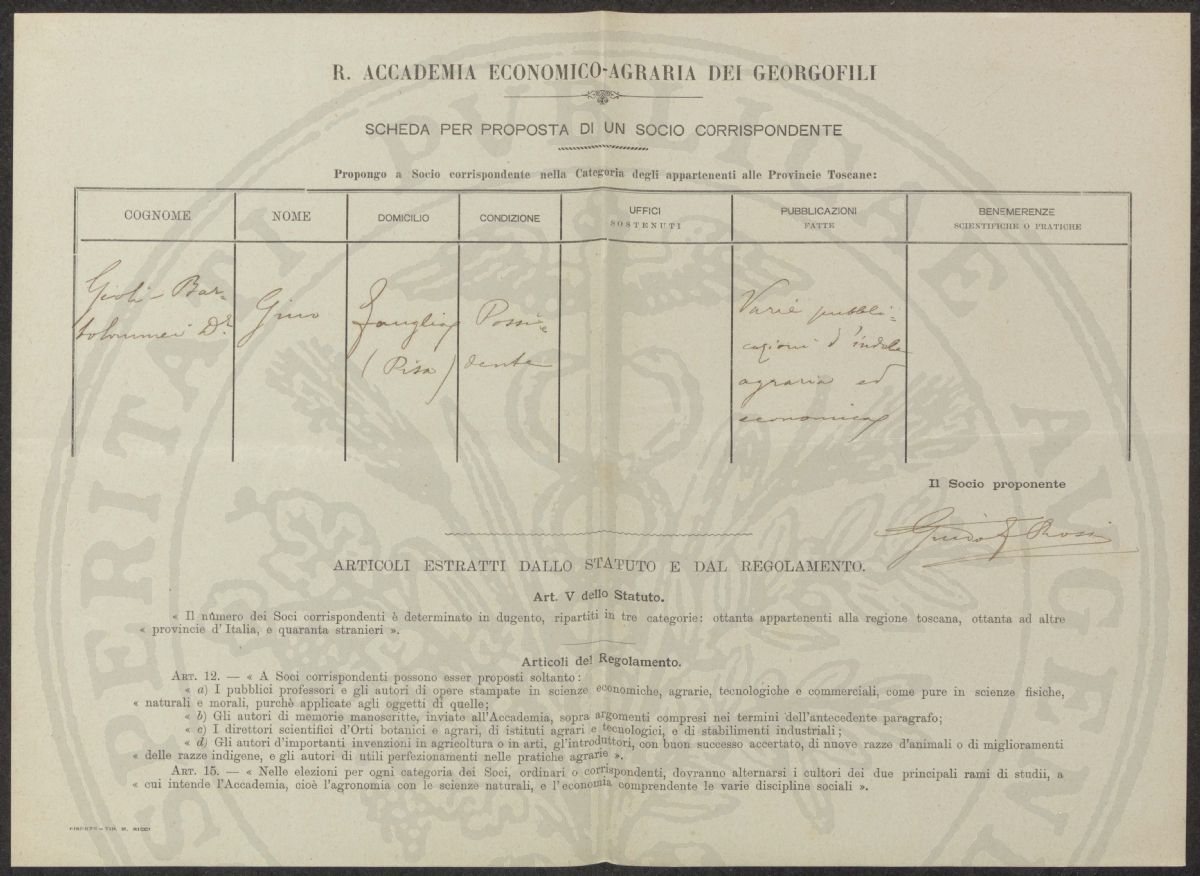 R. ACCADEMIA ECONOMICO-AGRARIA DEI GEORGOFILI
SCHEDA PER PROPOSTA DI UN SOCIO CORRISPONDENTE
Propongo a Socio corrispondente nella Categoria degli appartenenti alle Provincie Toscane:
COGNOME
NOME
DOMICILIO
CONDIZIONE
UFFICI
SOSTENUTI
PUBBLICAZIONI
FATTE
BENEMERENZE
SCIENTIFICHE O PRATICHE
Gioli-Bar-
tolommei Dr
Gino
Fauglia
(Pisa)
Possi-
dente
Varie pubbli-
cazioni d'indole
agraria ed
economica
Il Socio proponente
Guido Rossi
ARTICOLI ESTRATTI DALLO STATUTO E DAL REGOLAMENTO.
Art. V dello Statuto.
« Il numero dei Soci corrispondenti è determinato in dugento, ripartiti in tre categorie: ottanta appartenenti alla regione toscana, ottanta ad altre
« provincie d'Italia, e quaranta stranieri ».
Articoli del Regolamento.
ART. 12. — « A Soci corrispondenti possono esser proposti soltanto:
« a) I pubblici professori e gli autori di opere stampate in scienze economiche, agrarie, tecnologiche e commerciali, come pure in scienze fisiche,
« naturali e morali, purchè applicate agli oggetti di quelle;
« b) Gli autori di memorie manoscritte, inviate all'Accademia, sopra argomenti compresi nei termini dell'antecedente paragrafo;
« c) I direttori scientifici d'Orti botanici e agrari, di istituti agrari e tecnologici, e di stabilimenti industriali;
« d) Gli autori d'importanti invenzioni in agricoltura o in arti, gl'introduttori, con buon successo accertato, di nuove razze d'animali o di miglioramenti
« delle razze indigene, e gli autori di utili perfezionamenti nelle pratiche agrarie ».
ART. 15. — « Nelle elezioni per ogni categoria dei Soci, ordinari o corrispondenti, dovranno alternarsi i cultori dei due principali rami di studii, a
« cui intende l'Accademia, cioè l'agronomia con le scienze naturali, e l'economia comprendente le varie discipline sociali ».
FIRENZE - TIP. M. RICCI
PROSPERITATI PVBLICAE AVGENDAE